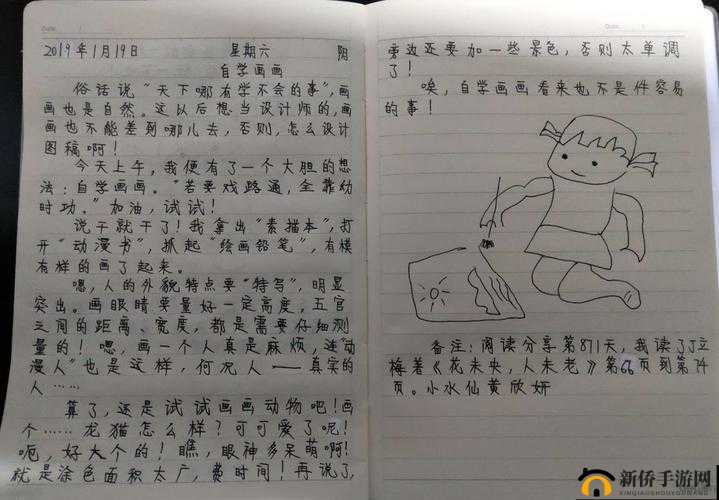 Date:
2019年1月19日 星期六 阴
自学画画
俗话说“天下哪有学不会的事”,画
画也是自然。这以后想当设计师的,画
画也不能差到哪儿去,否则,怎么设计
图稿啊!
今天上午,我便有了一个大胆的想
法:自学画画。“若要戏路通,全靠幼
时功。”加油,试试!
说干就干了!我拿出“素描本”,打
开“动漫书”,抓起“绘画铅笔”,有模
有样的画了起来。
嗯,人的外貌特点要“特写”,明显
突出。画眼睛要量好一定高度,五官
之间的距离、宽度,都是需要仔细测
量的!嗯,画一个人真是麻烦,连“动
漫人”也是这样,何况人——真实的
人……
算了,还是试试画画动物吧!画
个……龙猫怎么样?可可爱了呢!
呃,好大个的!瞧,眼神多呆萌啊!
就是涂色面积太广,费时间!再说了,
Date:
旁边还要加一些景色,否则太单调
了!
唉,自学画画看来也不是件容易
的事!
备注:阅读分享第871天,我读了丁立
梅著《花未央,人未老》第66页到第74
页。小水仙黄欣妍
新侨手游网
XINQIAOSHOUYOUWANG